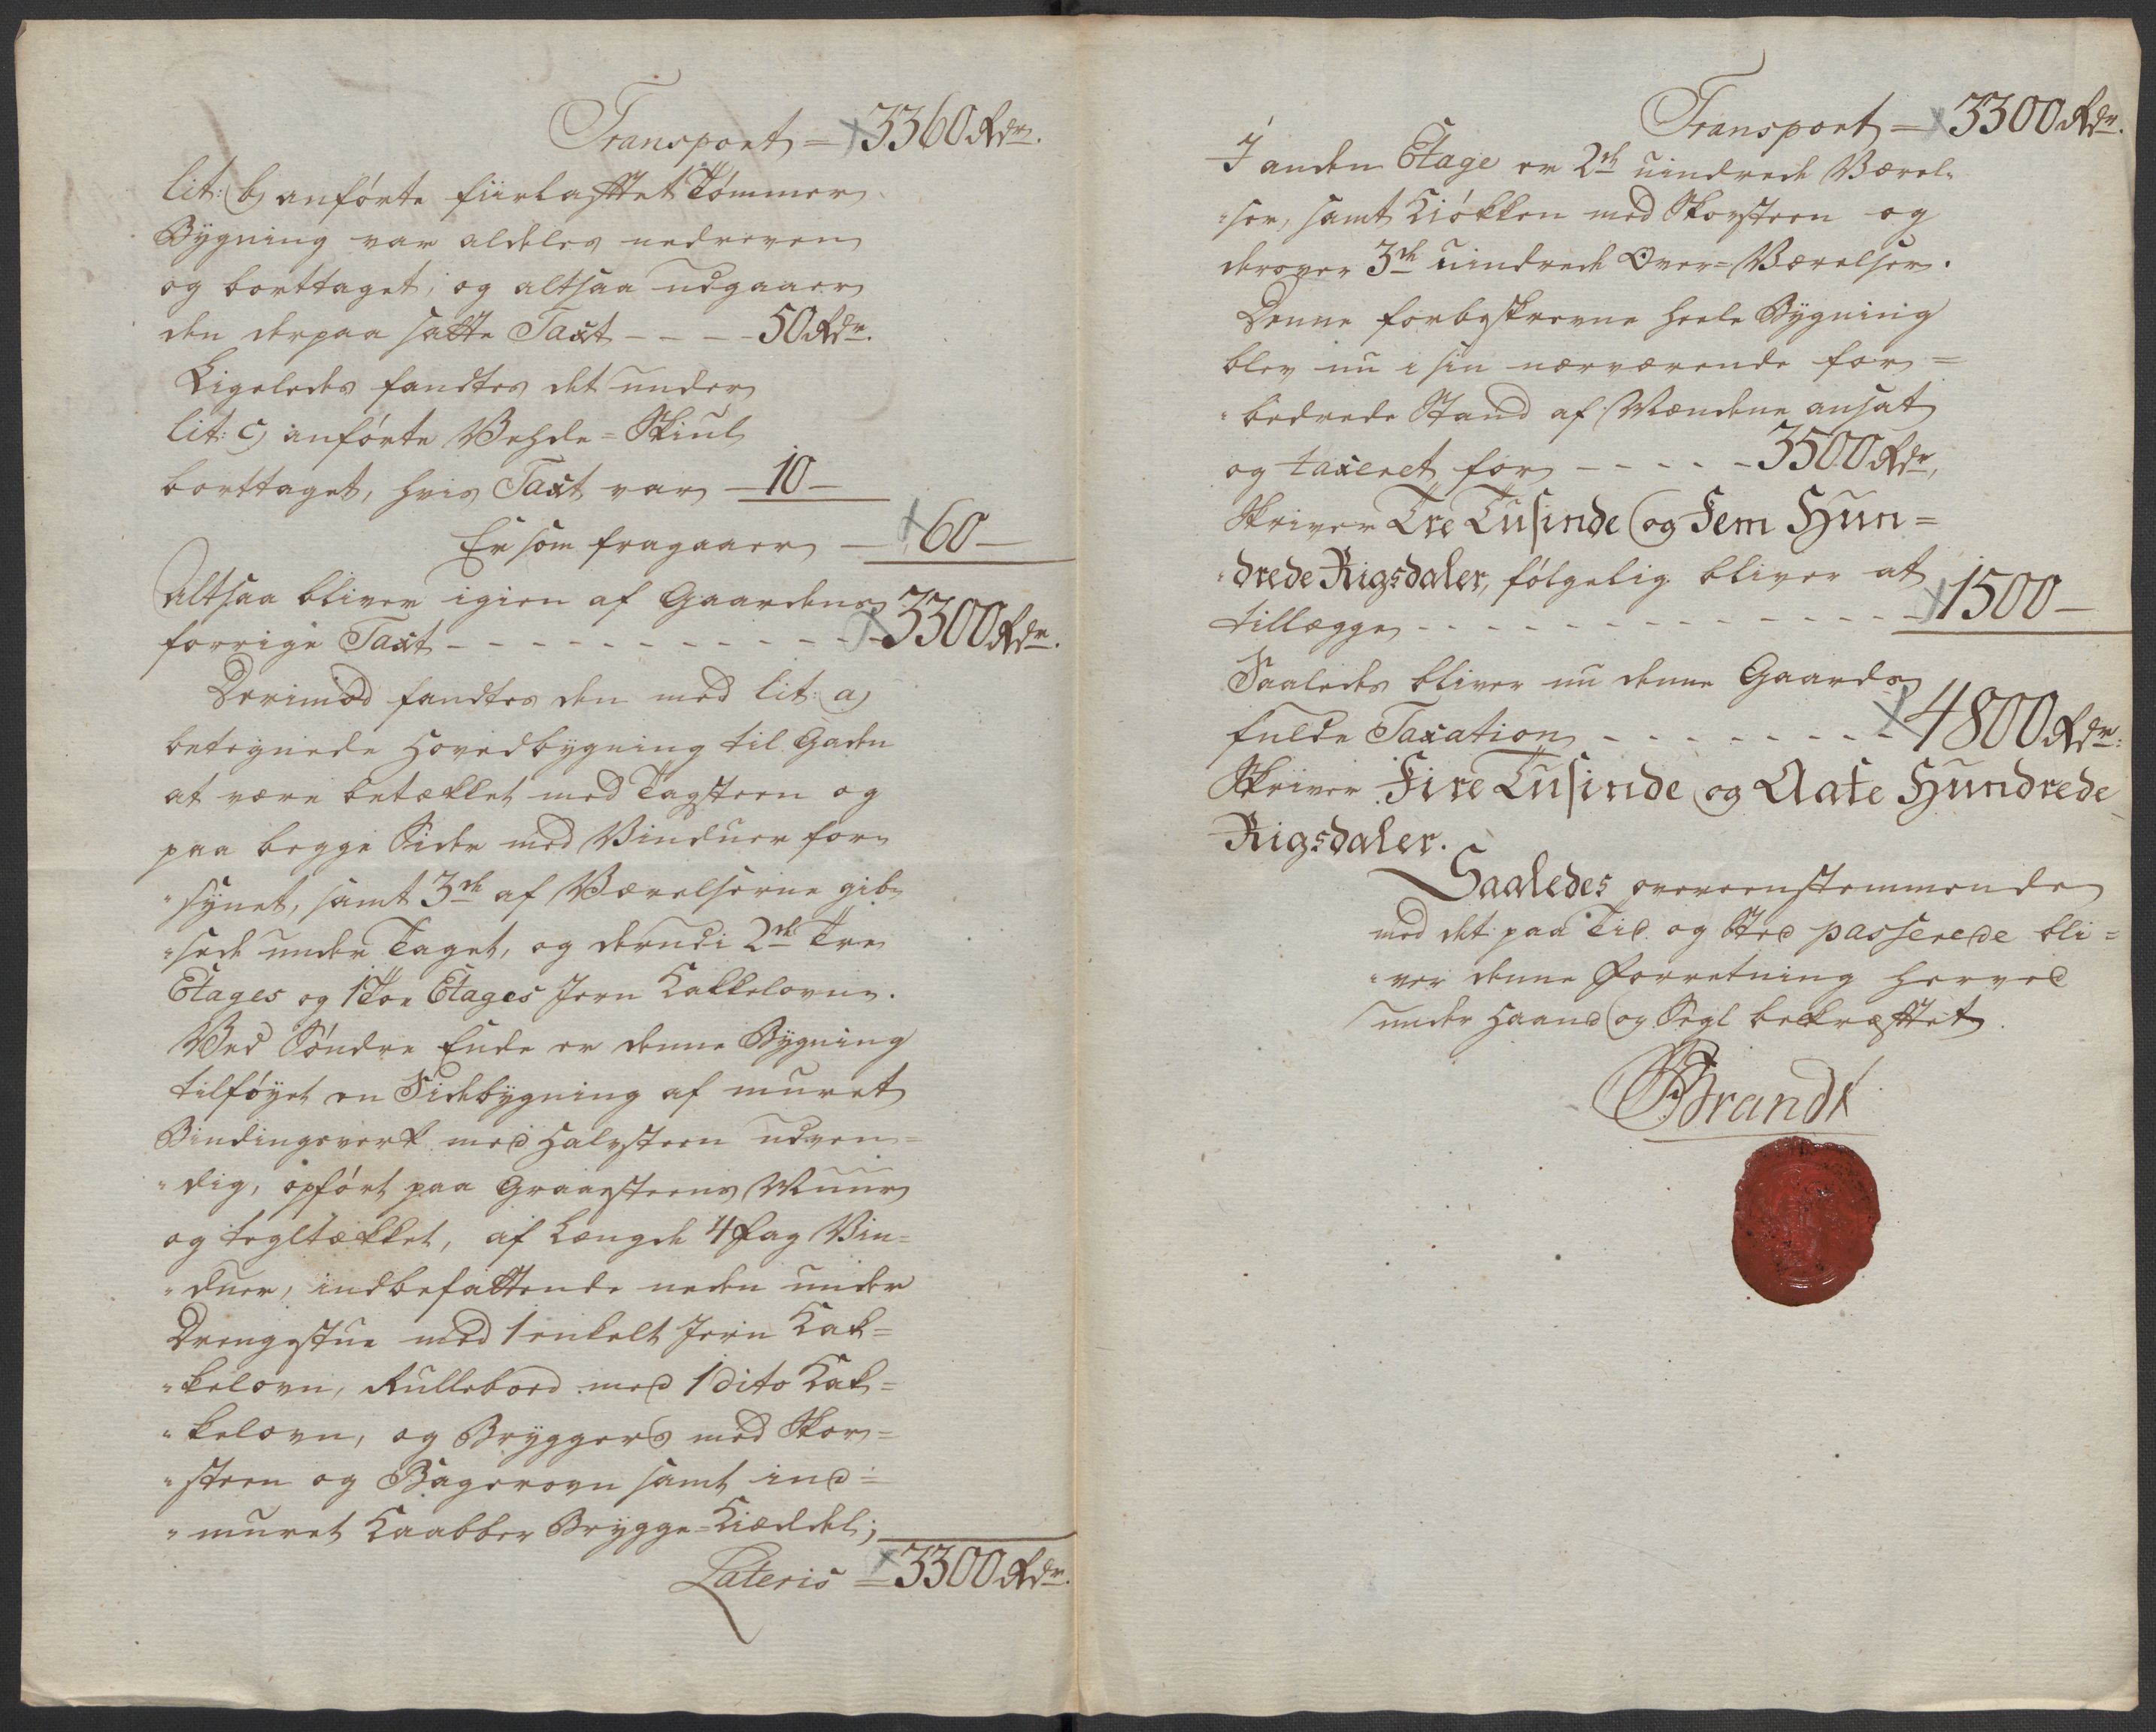 Transport = 3360 Rdr.
lit: b, anförte fiirlafttet Tömmer
Bÿgning var aldeles nedreven
og borttaget; og altsaa udgaaer
den derpaa satte Taxt - - - - 50 Rdr.
Ligeledes fandtes det under
lit: c, anförte Vehde-Skiul
borttaget, hvis Taxt var - 10 -
Er som fragaaer - 60 -
Altsaa bliver igien af Gaardens
forrige Taxt - - - - - - - - - - - 3300 Rdr.
Derimod fandtes den med lit: a,
betegnede Hovedbÿgning til Gaden
at være betækket med Tagsteen og
paa begge Sider med Vinduer for-
"sÿnet, samt 3de af Værelserne gib-
"sede under Taget, og derudi 2de Tre
Etages og 1 Toe Etages Jern Kakkelovne.
Ved Söndre Ende er denne Bÿgning
tilföÿet en Sidebÿgning af muret
Bindingsverk med Halvsteen udven-
"dig, opfört paa Graaesteens Muur
og tegltækket, af Længde 4 Fag Vin=
"duer, indbefattende neden under
Drengestue med 1 enkelt Jern Kak=
"kelovn, Rullebord med 1 dito Kak=
"kelovn, og Brÿggers med Skor=
"steen og Bagerovn samt ind=
"muret Kaabber Brÿgge-Kiæddel;
Lateris = 3300 Rdr.
Transport = 3300 Rdr.
I anden Etage er 2de uindrede Værel-
"ser, samt Kiökken med Skorsteen og
derover 3de uindrede Over-Værelser.
Denne forbeskrevne heele Bÿgning
blev nu i sin nærværende for=
"bedrede Stand af Mændene ansat
og taxeret for - - - - - 3500 Rdr,
Skriver Tre Tusinde og Fem Hun=
"drede Rigsdaler, fölgelig bliver at
tillægge - - - - - - - - - - - - - 1500 -
Saaledes bliver nu denne Gaards
fulde Taxation - - - - - - - - 4800 Rdr:
Skriver Fire Tusinde og Aate Hundrede
Rigsdaler.
Saaledes overeenstemmende
med det paa Tid og Sted passerede bli=
"ver denne Forretning herved
under Haand og Segl bekræftet.
Brandt